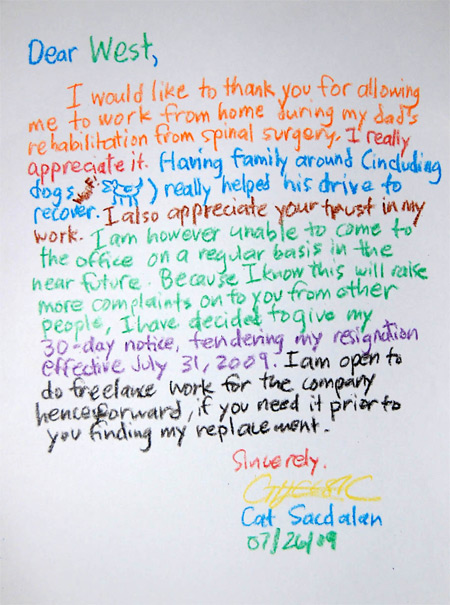 Dear West,
I would like to thank you for allowing
me to work from home during my dad's
rehabilitation from spinal surgery. I really
appreciate it. Having family around (including
dogs ) really helped his drive to
recover. I also appreciate your trust in my
work. I am however unable to come to
the office on a regular basis in the
near future. Because I know this will raise
more complaints on to you from other
people, I have decided to give my
30-day notice, tendering my resignation
effective July 31, 2009. I am open to
do freelance work for the company
henceforward, if you need it prior to
you finding my replacement.
Sincerely.
Cat Sacdalan
07/26/09